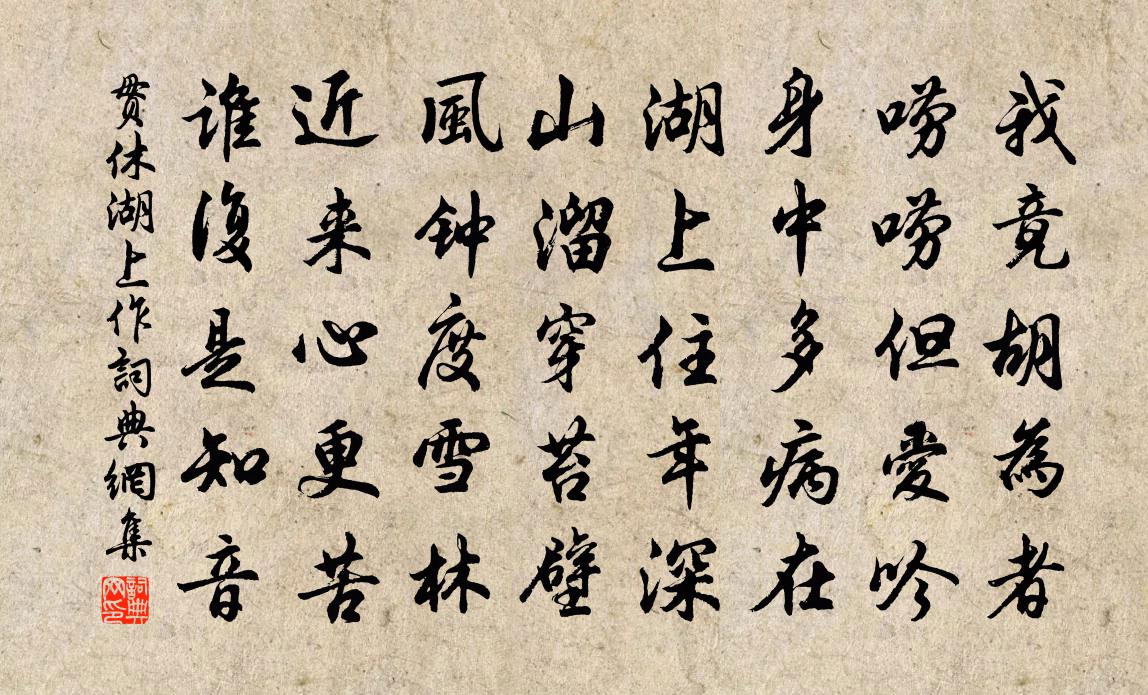 我竟胡為者
嘮嘮但愛吟
身中多病在
湖上住年深
山溜穿苔壁
風钟度雪林
近来心更苦
誰復是知音
贯休湖上作詞典網集
詞典网印